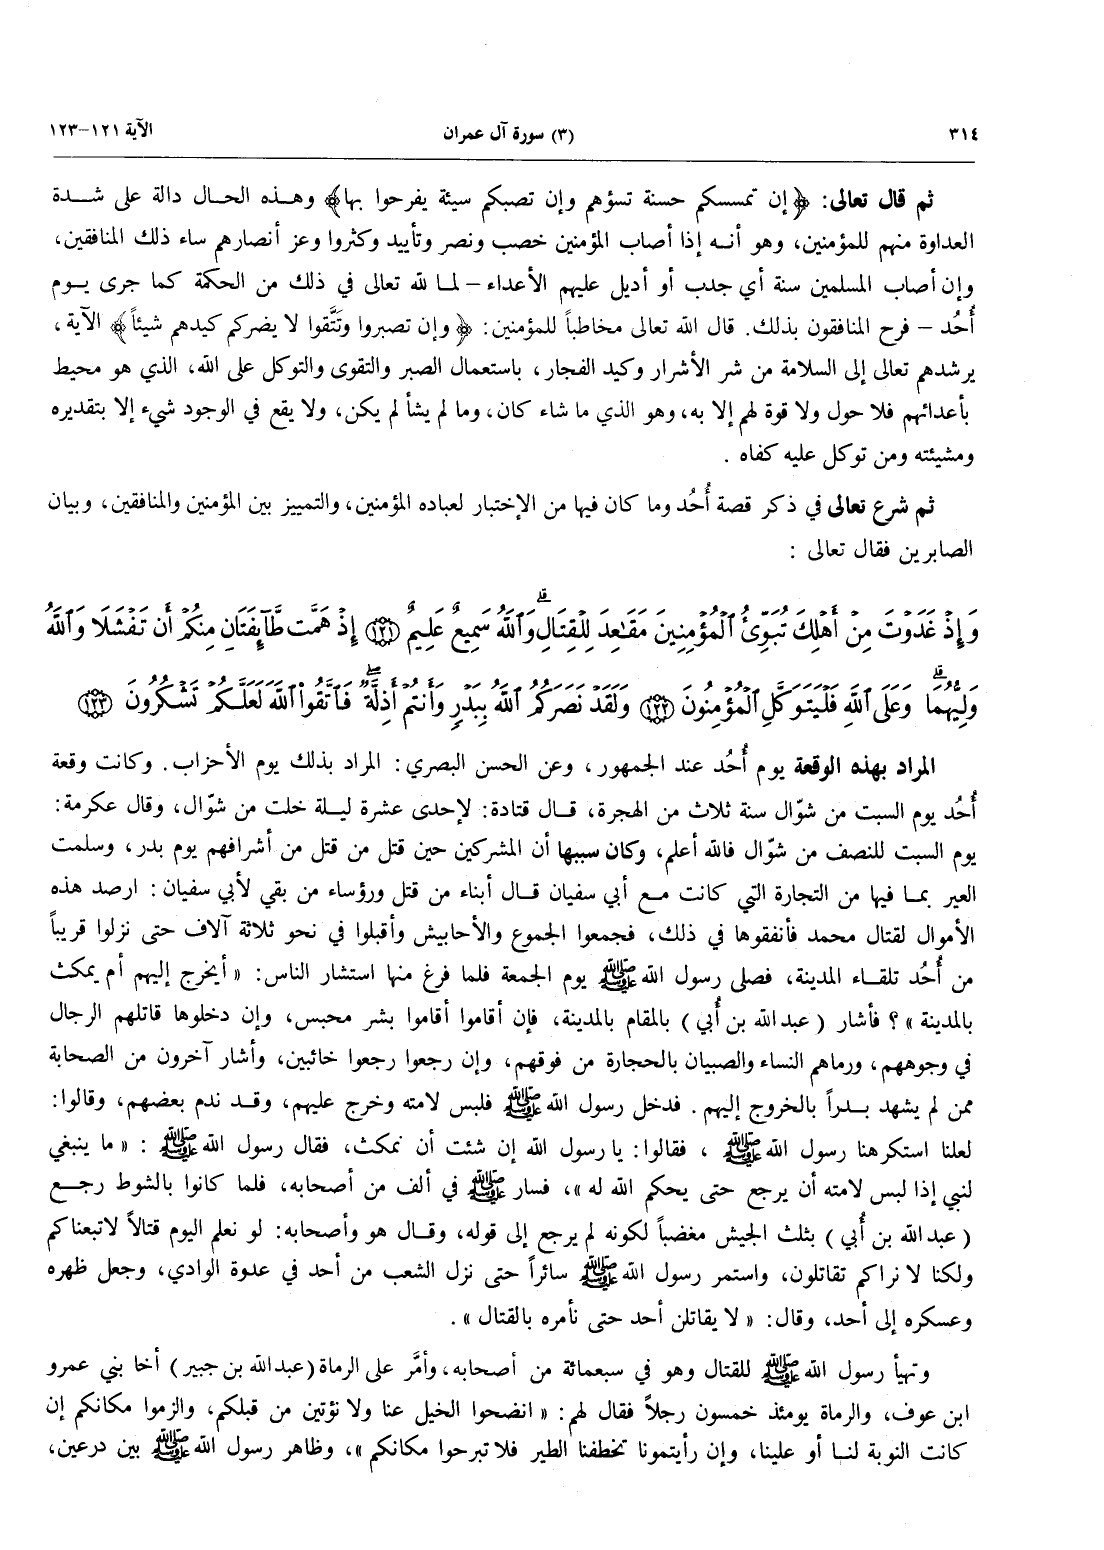 ٣١٤ (٣) سورة آل عمران الآية ١٢١-١٢٣
ثم قال تعالى: ﴿إن تمسسكم حسنة تسؤهم وإن تصبكم سيئة يفرحوا بها﴾ وهذه الحال دالة على شدة
العداوة منهم للمؤمنين، وهو أنه إذا أصاب المؤمنين خصب ونصر وتأييد وكثروا وعز أنصارهم ساء ذلك المنافقين،
وإن أصاب المسلمين سنة أي جدب أو أديل عليهم الأعداء – لما لله تعالى في ذلك من الحكمة كما جرى يوم
أُحُد – فرح المنافقون بذلك. قال الله تعالى مخاطباً للمؤمنين: ﴿وإن تصبروا وتَتَّقوا لا يضركم كيدهم شيئاً﴾ الآية،
يرشدهم تعالى إلى السلامة من شر الأشرار وكيد الفجار، باستعمال الصبر والتقوى والتوكل على الله، الذي هو محيط
بأعدائهم فلا حول ولا قوة لهم إلا به، وهو الذي ما شاء كان، وما لم يشأ لم يكن، ولا يقع في الوجود شيء إلا بتقديره
ومشيئته ومن توكل عليه كفاه .
ثم شرع تعالى في ذكر قصة أُحُد وما كان فيها من الإختبار لعباده المؤمنين، والتمييز بين المؤمنين والمنافقين، وبيان
الصابرين فقال تعالى :
وَإِذْ غَدَوْتَ مِنْ أَهْلِكَ تُبَوِّئُ ٱلْمُؤْمِنِينَ مَقَٰعِدَ لِلْقِتَالِ ۗ وَٱللَّهُ سَمِيعٌ عَلِيمٌ ١٢١ إِذْ هَمَّت طَّآئِفَتَانِ مِنكُمْ أَن تَفْشَلَا وَٱللَّهُ
وَلِيُّهُمَا ۗ وَعَلَى ٱللَّهِ فَلْيَتَوَكَّلِ ٱلْمُؤْمِنُونَ ١٢٢ وَلَقَدْ نَصَرَكُمُ ٱللَّهُ بِبَدْرٍ وَأَنتُمْ أَذِلَّةٌ ۖ فَٱتَّقُوا۟ ٱللَّهَ لَعَلَّكُمْ تَشْكُرُونَ ١٢٣
المراد بهذه الوقعة يوم أُحُد عند الجمهور، وعن الحسن البصري: المراد بذلك يوم الأحزاب. وكانت وقعة
أُحُد يوم السبت من شوّال سنة ثلاث من الهجرة، قال قتادة: لإحدى عشرة ليلة خلت من شوّال، وقال عكرمة:
يوم السبت للنصف من شوّال فالله أعلم، وكان سببها أن المشركين حين قتل من قتل من أشرافهم يوم بدر، وسلمت
العير بما فيها من التجارة التي كانت مع أبي سفيان قال أبناء من قتل ورؤساء من بقي لأبي سفيان: ارصد هذه
الأموال لقتال محمد فأنفقوها في ذلك، فجمعوا الجموع والأحابيش وأقبلوا في نحو ثلاثة آلاف حتى نزلوا قريباً
من أُحُد تلقاء المدينة، فصلى رسول الله ﷺ يوم الجمعة فلما فرغ منها استشار الناس: « أيخرج إليهم أم يمكث
بالمدينة »؟ فأشار ( عبد الله بن أُبي ) بالمقام بالمدينة، فإن أقاموا أقاموا بشر محبس، وإن دخلوها قاتلهم الرجال
في وجوههم، ورماهم النساء والصبيان بالحجارة من فوقهم، وإن رجعوا رجعوا خائبين، وأشار آخرون من الصحابة
ممن لم يشهد بدراً بالخروج إليهم. فدخل رسول الله ﷺ فلبس لامته وخرج عليهم، وقد ندم بعضهم، وقالوا:
لعلنا استكرهنا رسول الله ﷺ ، فقالوا: يا رسول الله إن شئت أن نمكث، فقال رسول الله ﷺ : « ما ينبغي
لنبي إذا لبس لامته أن يرجع حتى يحكم الله له »، فسار ﷺ في ألف من أصحابه، فلما كانوا بالشوط رجع
( عبد الله بن أُبي ) بثلث الجيش مغضباً لكونه لم يرجع إلى قوله، وقال هو وأصحابه: لو نعلم اليوم قتالاً لاتبعناكم
ولكنا لا نراكم تقاتلون، واستمر رسول الله ﷺ سائراً حتى نزل الشعب من أحد في عدوة الوادي، وجعل ظهره
وعسكره إلى أحد، وقال: « لا يقاتلن أحد حتى نأمره بالقتال ».
وتهيأ رسول الله ﷺ للقتال وهو في سبعمائة من أصحابه، وأمَّر على الرماة (عبد الله بن جبير) أخا بني عمرو
ابن عوف، والرماة يومئذ خمسون رجلاً فقال لهم: « انضحوا الخيل عنا ولا نؤتين من قبلكم، والزموا مكانكم إن
كانت النوبة لنا أو علينا، وإن رأيتمونا تخطفنا الطير فلا تبرحوا مكانكم »، وظاهر رسول الله ﷺ بين درعين،